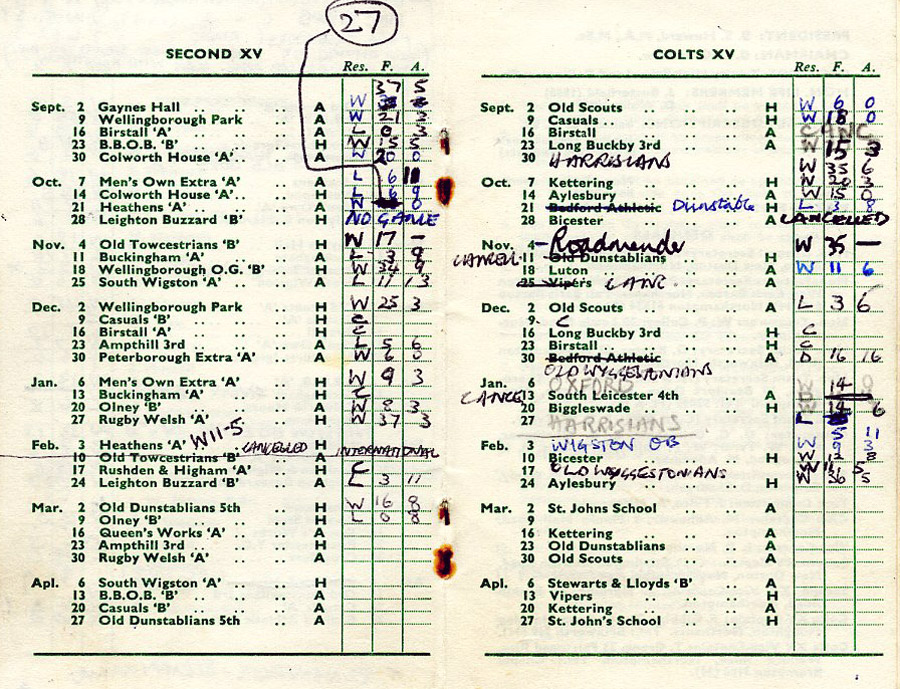 27
SECOND XV
Res. F. A.
37 5
Sept. 2 Gaynes Hall A W
9 Wellingborough Park A W 21 3
16 Birstall ‘A’ A L 0 3
23 B.B.O.B. ‘B’ H W 15 5
30 Colworth House ‘A’ A W 20 0
Oct. 7 Men’s Own Extra ‘A’ A L 6 11
14 Colworth House ‘A’ H L 6 9
21 Heathens ‘A’ A W 0
28 Leighton Buzzard ‘B’ H NO GAME
Nov. 4 Old Towcestrians ‘B’ H W 17 –
11 Buckingham ‘A’ A L 3 8
18 Wellingborough O.G. ‘B’ H W 34 9
25 South Wigston ‘A’ A L 11 13
Dec. 2 Wellingborough Park H W 25 3
9 Casuals ‘B’ H C
16 Birstall ‘A’ H C
23 Ampthill 3rd A L 5 6
30 Peterborough Extra ‘A’ H W 6 0
Jan. 6 Men’s Own Extra ‘A’ H W 9 3
13 Buckingham ‘A’ H C
20 Olney ‘B’ A W 8 3
27 Rugby Welsh ‘A’ H W 37 3
Feb. 3 Heathens ‘A’ W11-5 CANCELLED H
10 Old Towcestrians ‘B’ A INTERNATIONAL
17 Rushden & Higham ‘A’ H C
24 Leighton Buzzard ‘B’ A L 3 11
Mar. 2 Old Dunstablians 5th A W 16 8
9 Olney ‘B’ H L 0 8
16 Queen’s Works ‘A’ A
23 Ampthill 3rd H
30 Rugby Welsh ‘A’ A
Apl. 6 South Wigston ‘A’ H
13 B.B.O.B. ‘B’ A
20 Casuals ‘B’ A
27 Old Dunstablians 5th A
COLTS XV
Res. F. A.
Sept. 2 Old Scouts H W 6 0
9 Casuals H W 18 0
16 Birstall A CANC
23 Long Buckby 3rd A W 15 3
30 HARRISIANS W 35 6
Oct. 7 Kettering H W 20 3
14 Aylesbury A W 15 0
21 Bedford Athletic Dunstable H L 3 8
28 Bicester A CANCELLED
Nov. 4 Roadmende W 35 —
CANCELL 11 Old Dunstablians H
18 Luton A W 11 6
25 Vipers CANC. A
Dec. 2 Old Scouts A L 3 6
9 C
16 Long Buckby 3rd H C
23 Birstall H C
30 Bedford Athletic A D 16 16
OLD WYGGESTONIANS
Jan. 6 OXFORD W 14 0
CANCEL 13 South Leicester 4th A
20 Biggleswade H W 14 6
27 HARRISIANS L
5 11
Feb. 3 WIGSTON OB W 3
10 Bicester H W 12 8
17 OLD WYGGESTONIANS W 11 5
24 Aylesbury H W 36 5
Mar. 2 St. Johns School A
9
16 Kettering A
23 Old Dunstablians A
30 Old Scouts A
Apl. 6 Stewarts & Lloyds ‘B’ A
13 Vipers H
20 Kettering A
27 St. John’s School H